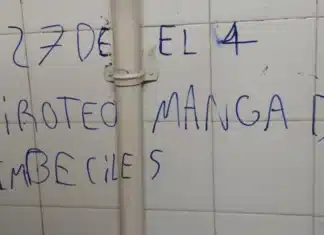 27 DE EL 4
IROTEO MANGA D
IMBECILES